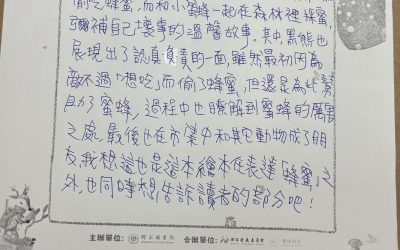 偷吃蜂蜜,而和小蜜蜂一起在森林裡採蜜,
彌補自己壞事的溫馨故事。其中黑熊也
展現出了認真負責的一面,雖然最初因為
敵不過「想吃」而偷了蜂蜜,但還是為此幫
助了蜜蜂,過程中也瞭解到蜜蜂的厲害
之處,最後也在市集中和其它動物成了朋
友,我想這也是這本繪本在表達「蜂蜜」之
外,也同時想告訴讀者的部分吧!
主辦單位:
合辦單位: